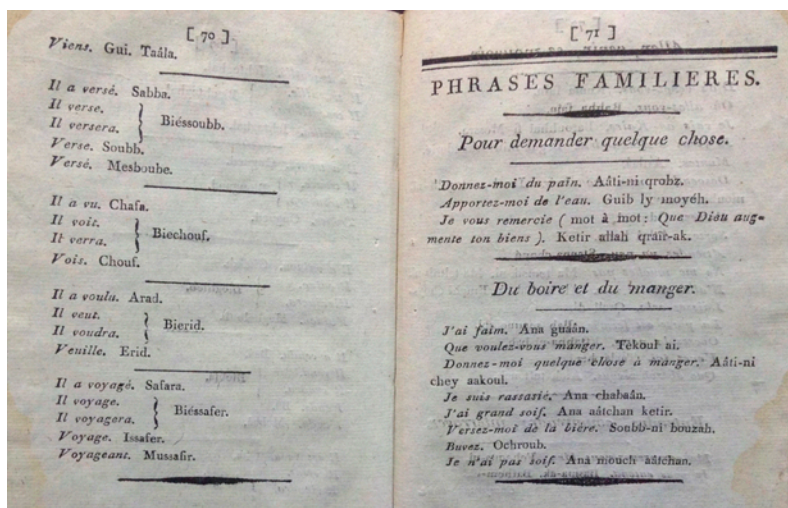 [ 70 ]
Viens. Gui. Taála.
Il a versé. Sabba.
Il verse.
Il versera.
Biéssoubb.
Verse. Soubb.
Versé. Mesboube.
Il a vu. Chafa.
Il voit.
Il verra.
Biechouf.
Vois. Chouf.
Il a voulu. Arad.
Il veut.
Il voudra.
Bierid.
Veuille. Erid.
Il a voyagé. Safara.
Il voyage.
Il voyagera.
Biéssafer.
Voyage. Issafer.
Voyageant. Mussafir.
[ 71 ]
PHRASES FAMILIERES.
Pour demander quelque chose.
Donnez-moi du pain. Aâti-ni qrobz.
Apportez-moi de l'eau. Guib ly moyéh.
Je vous remercie ( mot à mot : Que Dieu aug-
mente ton biens ). Ketir allah qraïr-ak.
Du boire et du manger.
J'ai faim. Ana guaân.
Que voulez-vous manger. Tékoul ai.
Donnez-moi quelque chose à manger. Aâti-ni
chey aakoul.
Je suis rassasié. Ana chabaân.
J'ai grand soif. Ana aâtchan ketir.
Versez-moi de la bière. Soubb-ni bouzah.
Buvez. Ochroub.
Je n'ai pas soif. Ana mouch aâtchan.